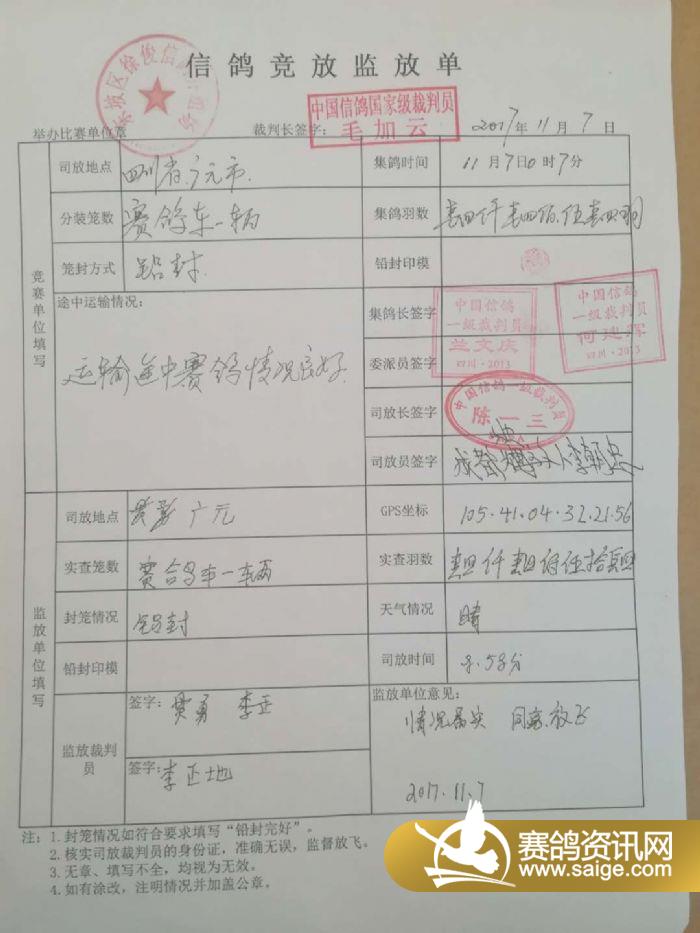 信鸽竞放监放单
中国信鸽国家级裁判员
毛加云
举办比赛单位章 裁判长签字: 2017年11月7日
司放地点 四川省广元市 集鸽时间 11月7日0时7分
分装笼数 赛鸽车一辆 集鸽羽数
笼封方式 铅封 铅封印模
竞赛单位填写
途中运输情况:
运输途中赛鸽情况良好
集鸽长签字
中国信鸽
一级裁判员
兰文庆
四川·2013
中国信鸽
一级裁判员
四川·2013
委派员签字
司放长签字
中国信鸽一级裁判员
陈一三
司放员签字
监放单位填写
司放地点 广元 GPS坐标 105.41.04-32.21.56
实查笼数 赛鸽车一辆 实查羽数
封笼情况 铅封 天气情况 晴
铅封印模 司放时间 8.58分
监放裁判员
签字: 李正
签字: 李正地
监放单位意见:
情况属实 同意放飞
2017.11.7
注: 1.封笼情况如符合要求填写“铅封完好”。
2.核实司放裁判员的身份证,准确无误,监督放飞。
3.无章、填写不全,均视为无效。
4.如有涂改,注明情况并加盖公章。
赛鸽资讯网
www.saige.com